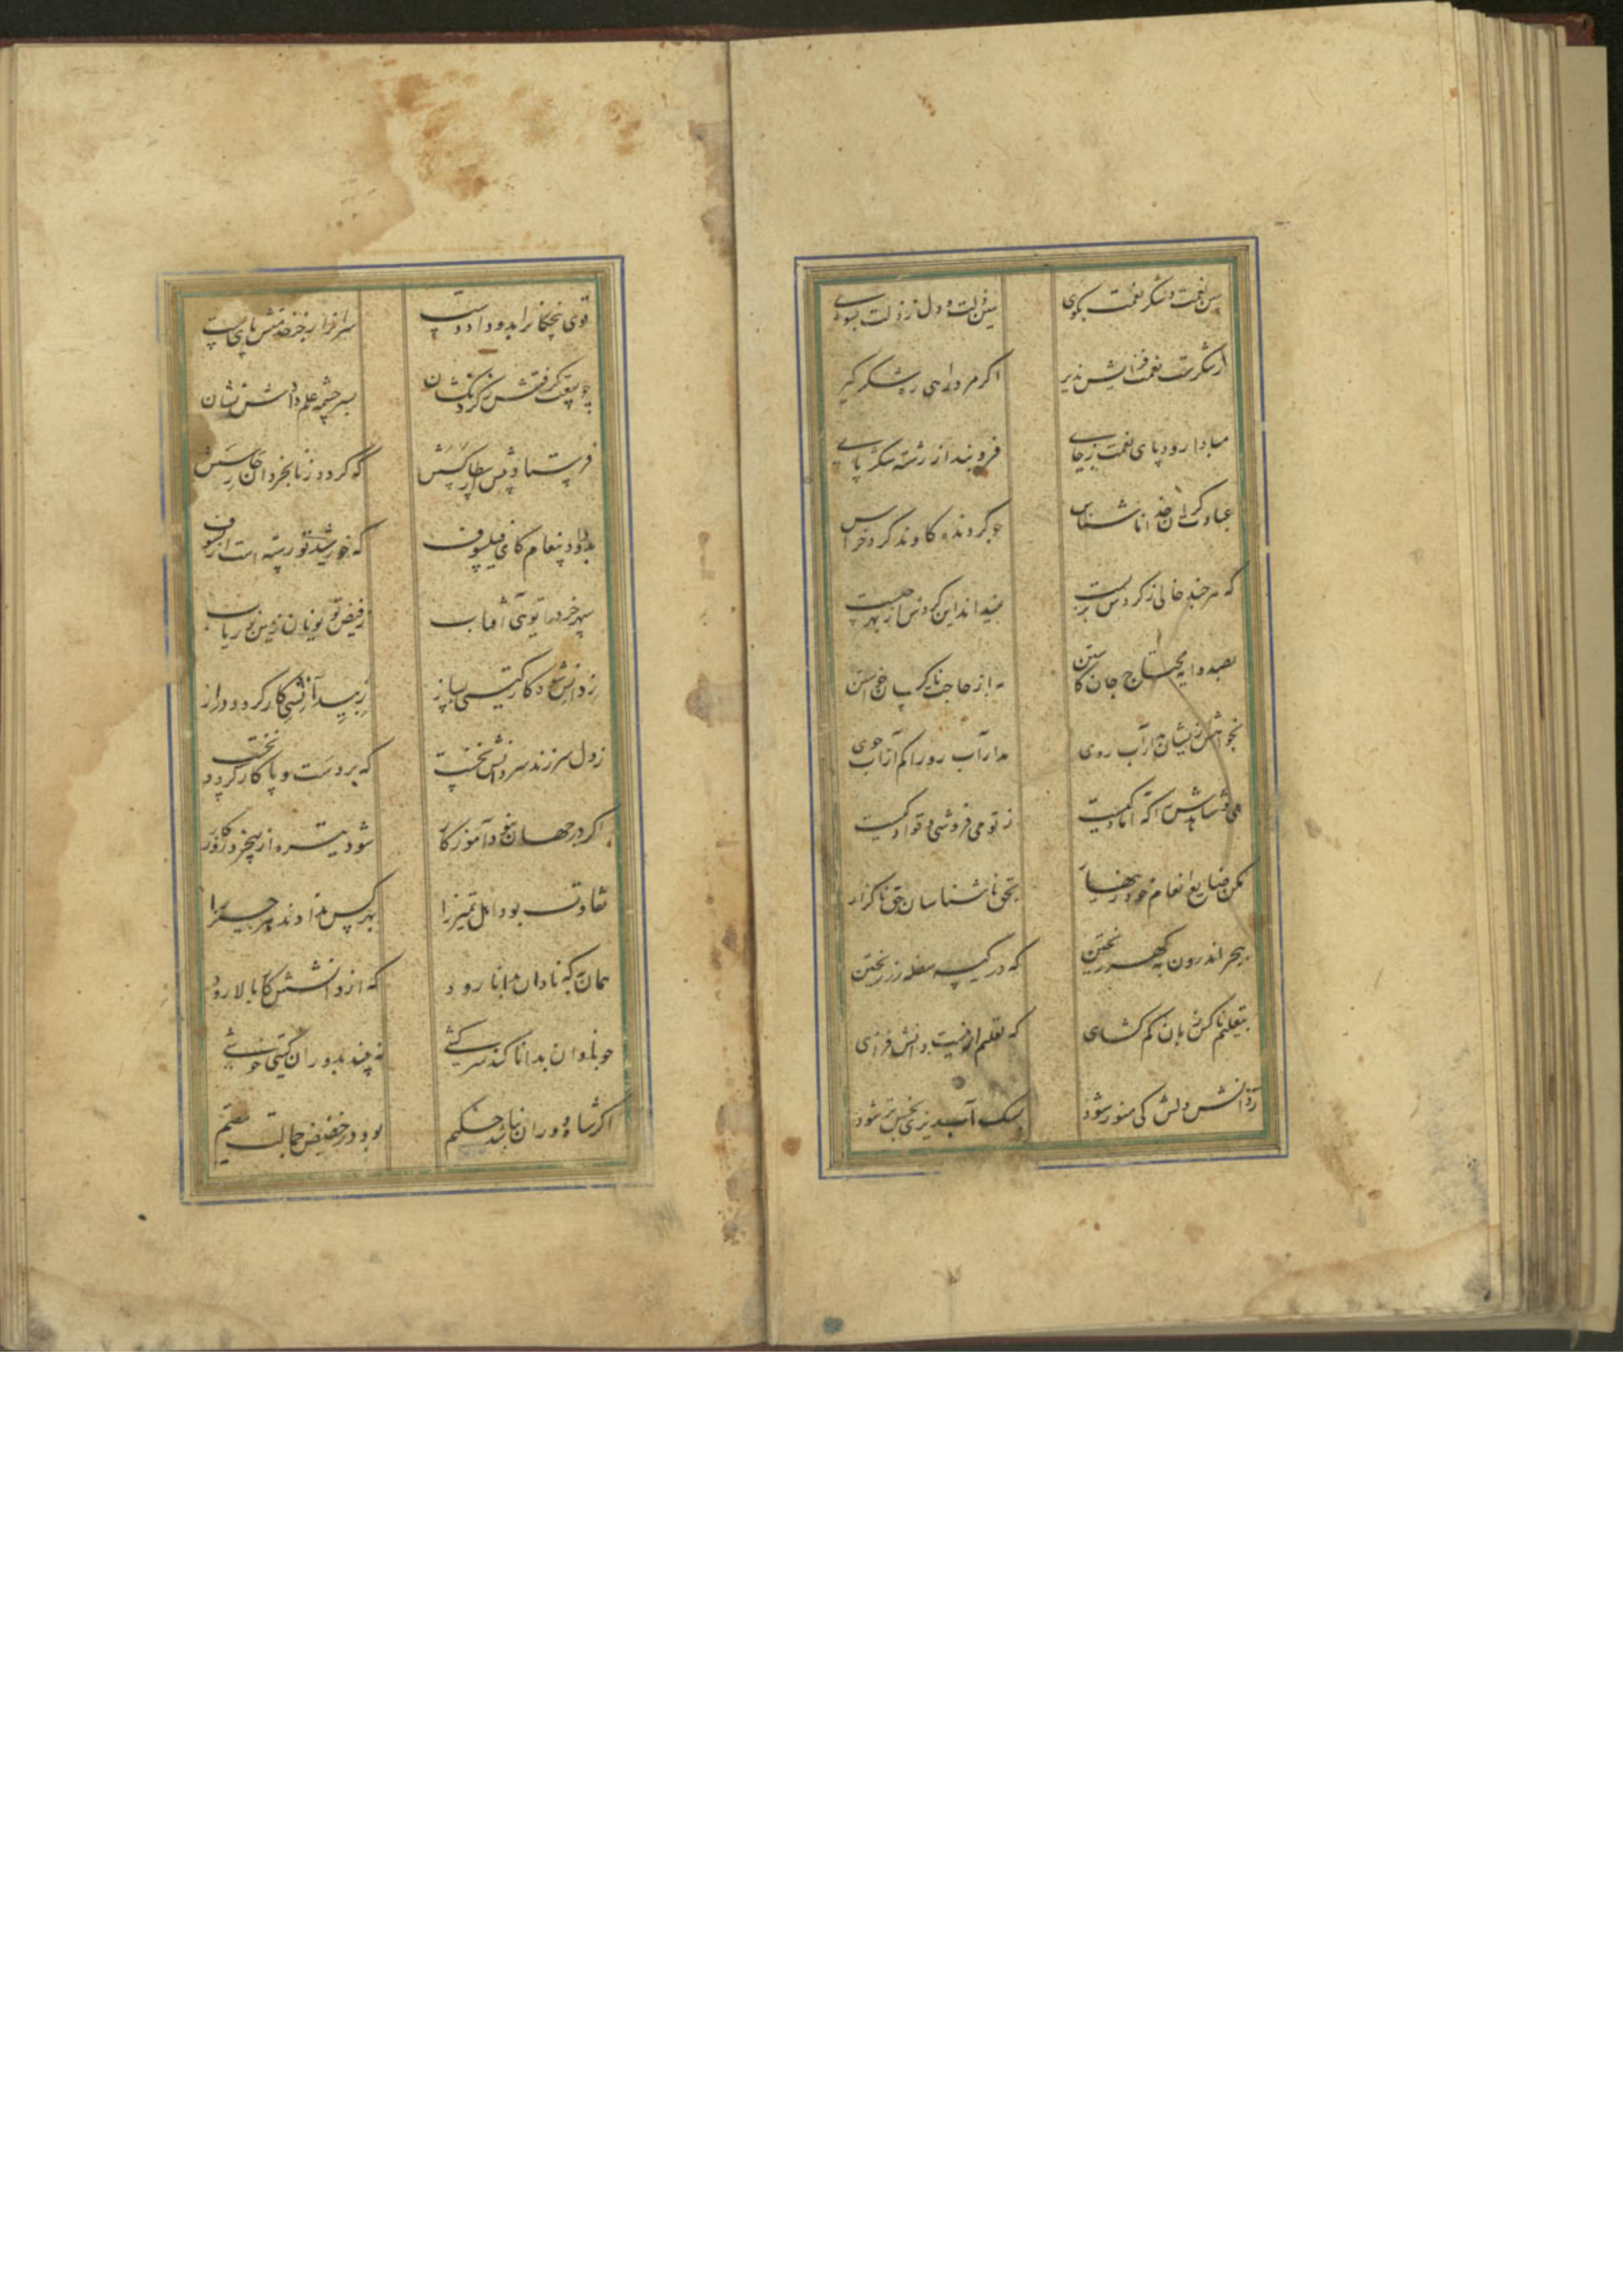 ببین نعمت و شکر نعمت بگوی ببین زلت و دل ز زلت بشوی
از شکرت نعمت فزایش پذیر اگر مرد راهی ره شکر گیر
مبادا رود پای نعمت ز جای فرو بند از رشته شکر پای
عبادت گران خدا ناشناس چو گردنده گاوند گرد خراس
که هر چند خالی ز گردش نمیداند این گردش از بهر چیست
بصد محتاج جان کاستن به از حاجت خواستن
بخواهش ازیشان مدار آب روی مدار آب رو را کم از آب جوی
می و شاهدش را که ز تو می فروشی و قوادگیست
مکن ضایع انعام خود زینهار بحق ناشناسان حق ناگزار
ببحر اندرون به گهر ریختن که در کیسه سفله زر ریختن
بتعلیم ناکس زبان کم گشای که تعلیم او نیست دانش فزای
ز دانش دلش کی منور شود سگ آب نجس تر شود
قوی پنجگانرا بدو داد دست سرافراز از خدمتش پای پست
چو سبقت گرفتش ز گردنکشان بسر چشمه علم و دانش نشان
فرستاد پیش ارسطالیسش که گردد ز نابخردان حارسش
بدو داد پیغام کای فیلسوف که خورشید تو رسته است از کسوف
سپهر خرد را تویی آفتاب ز فیض تو یونان زمین نور یاب
ز دانش شود کار گیتی بساز ز بی دانشی کار گردد دراز
ز دل سر زند سر دانش نخست که بر دست و پا کار گردد درست
اگر در جهان نبود آموزگار شود تیره از بیخرد روزگار
تفاوت بود اهل تمییز را بهر کس ندادند هر چیز را
همان به که نادان بدانا رود که از دانشش کار بالا رود
چو نادان بدانا کند سرکشی نه بیند بدوران گیتی خوشی
اگر شاه دوران نباشد حکیم بود در حضیض جهالت مقیم